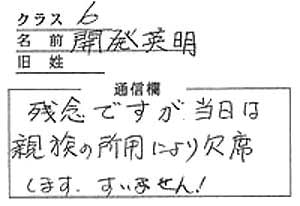 クラス 6
名前 開発英明
旧姓
通信欄
残念ですが 当日は
親族の所用により欠席
します. すいません!